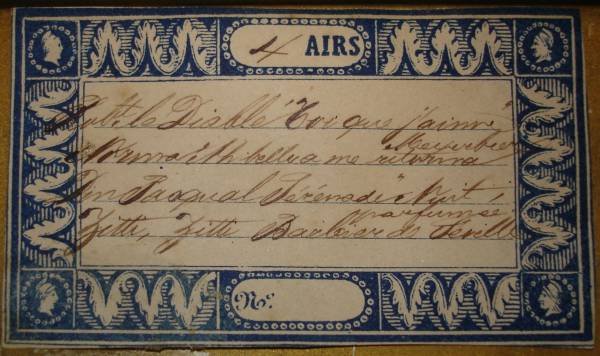 4 AIRS
Rob.t le Diable "Toi que j'aime"
Meyerbeer
Norma "Ah bello a me ritorna
Don Pasqual Sérénade "Nuit
parfumée
Zitti, Zitti Barbier de Séville
No.